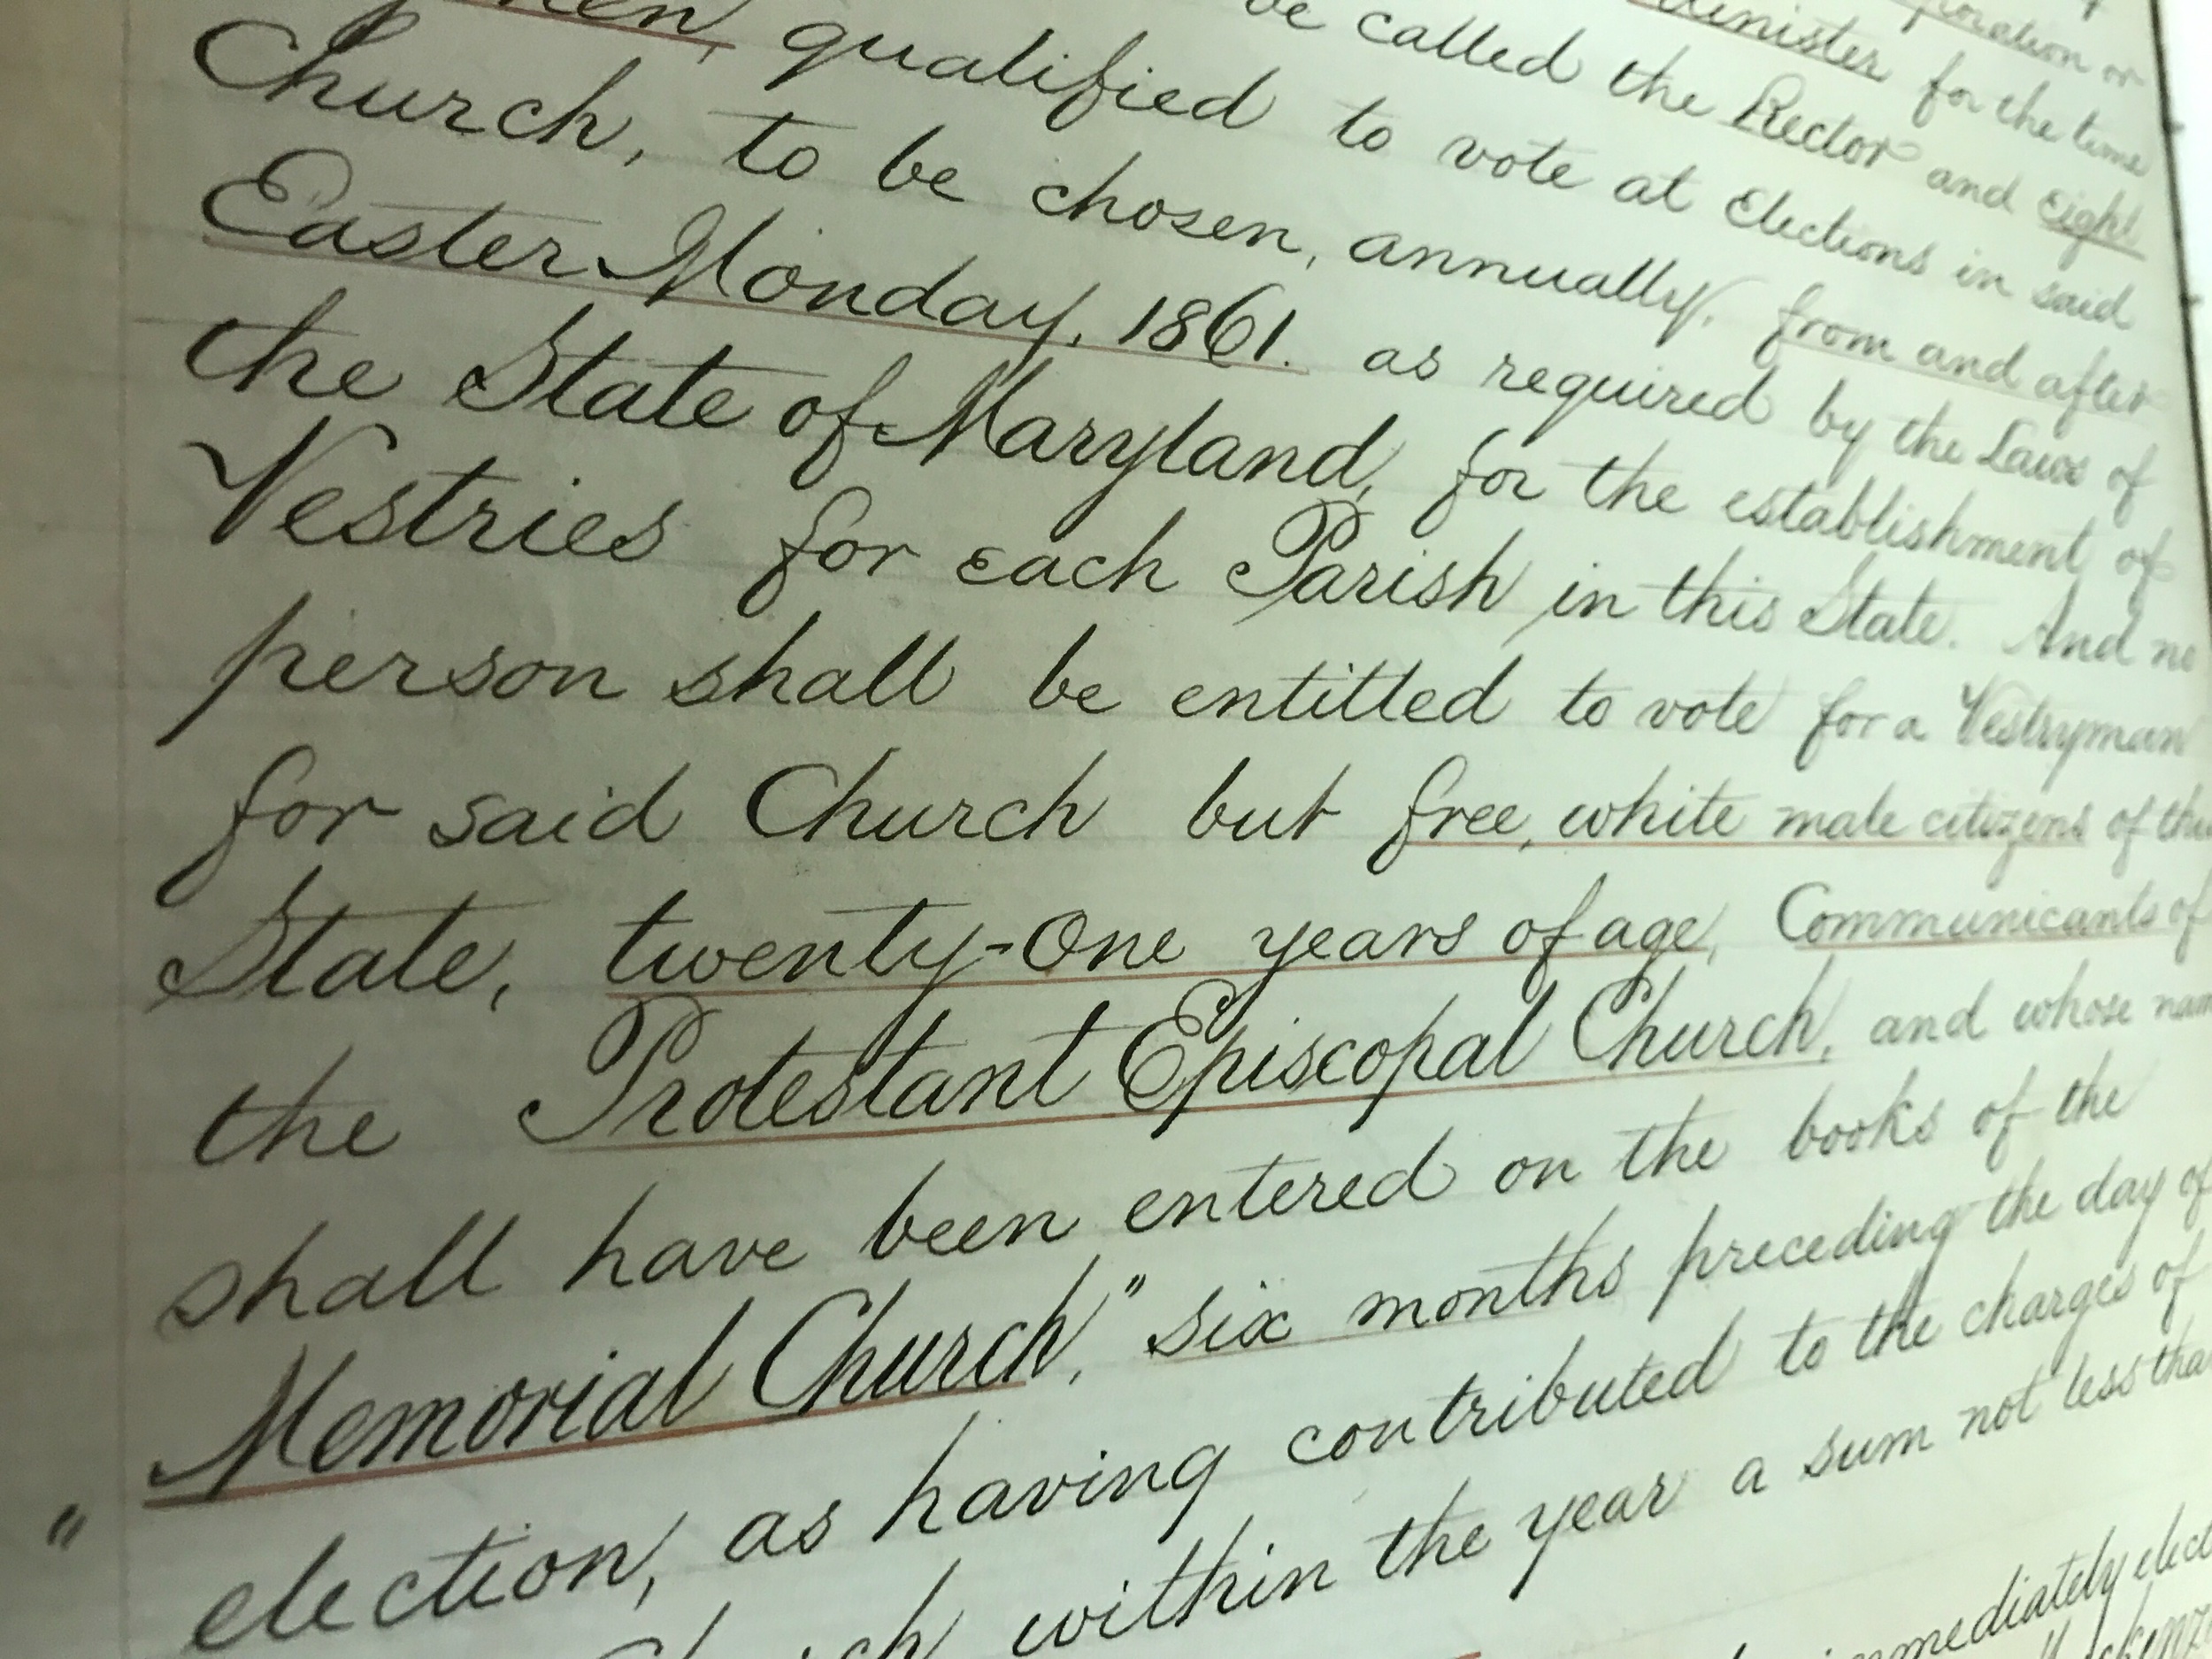 or
Minister for the time
be called the Rector and Eight
men, qualified to vote at Elections in said
Church, to be chosen, annually, from and after
Easter Monday, 1861. as required by the Laws of
the State of Maryland, for the establishment of
Vestries for each Parish in this State. And no
person shall be entitled to vote for a Vestryman
for said Church but free, white male citizens of this
State, twenty-One years of age, Communicants of
the Protestant Episcopal Church, and whose nam
shall have been entered on the books of the
"Memorial Church," six months preceding the day of
election, as having contributed to the charges of
within the year a sum not less tha
immediately elec